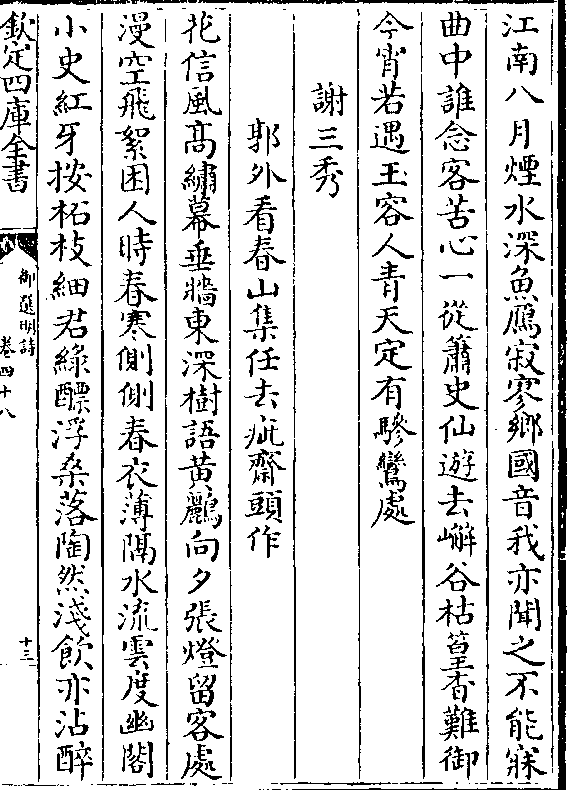 江南八月煙水深魚鴈寂寥鄉國音我亦聞之不能寐
曲中誰念客苦心一從簫史仙遊去嶰谷枯篁杳難御
今宵若遇玉容人青天定有驂鸞處
謝三秀
郭外看春山集任去疵齋頭作
花信風髙繡幕垂牆東深樹語黄鸝向夕張燈留客處
漫空飛絮困人時春寒側側春衣薄隔水流雲度幽閣
小史紅牙按柘枝細君緑醥浮桑落陶然淺飲亦沾醉
欽定四庫全書
御選明詩
卷四十八
十三